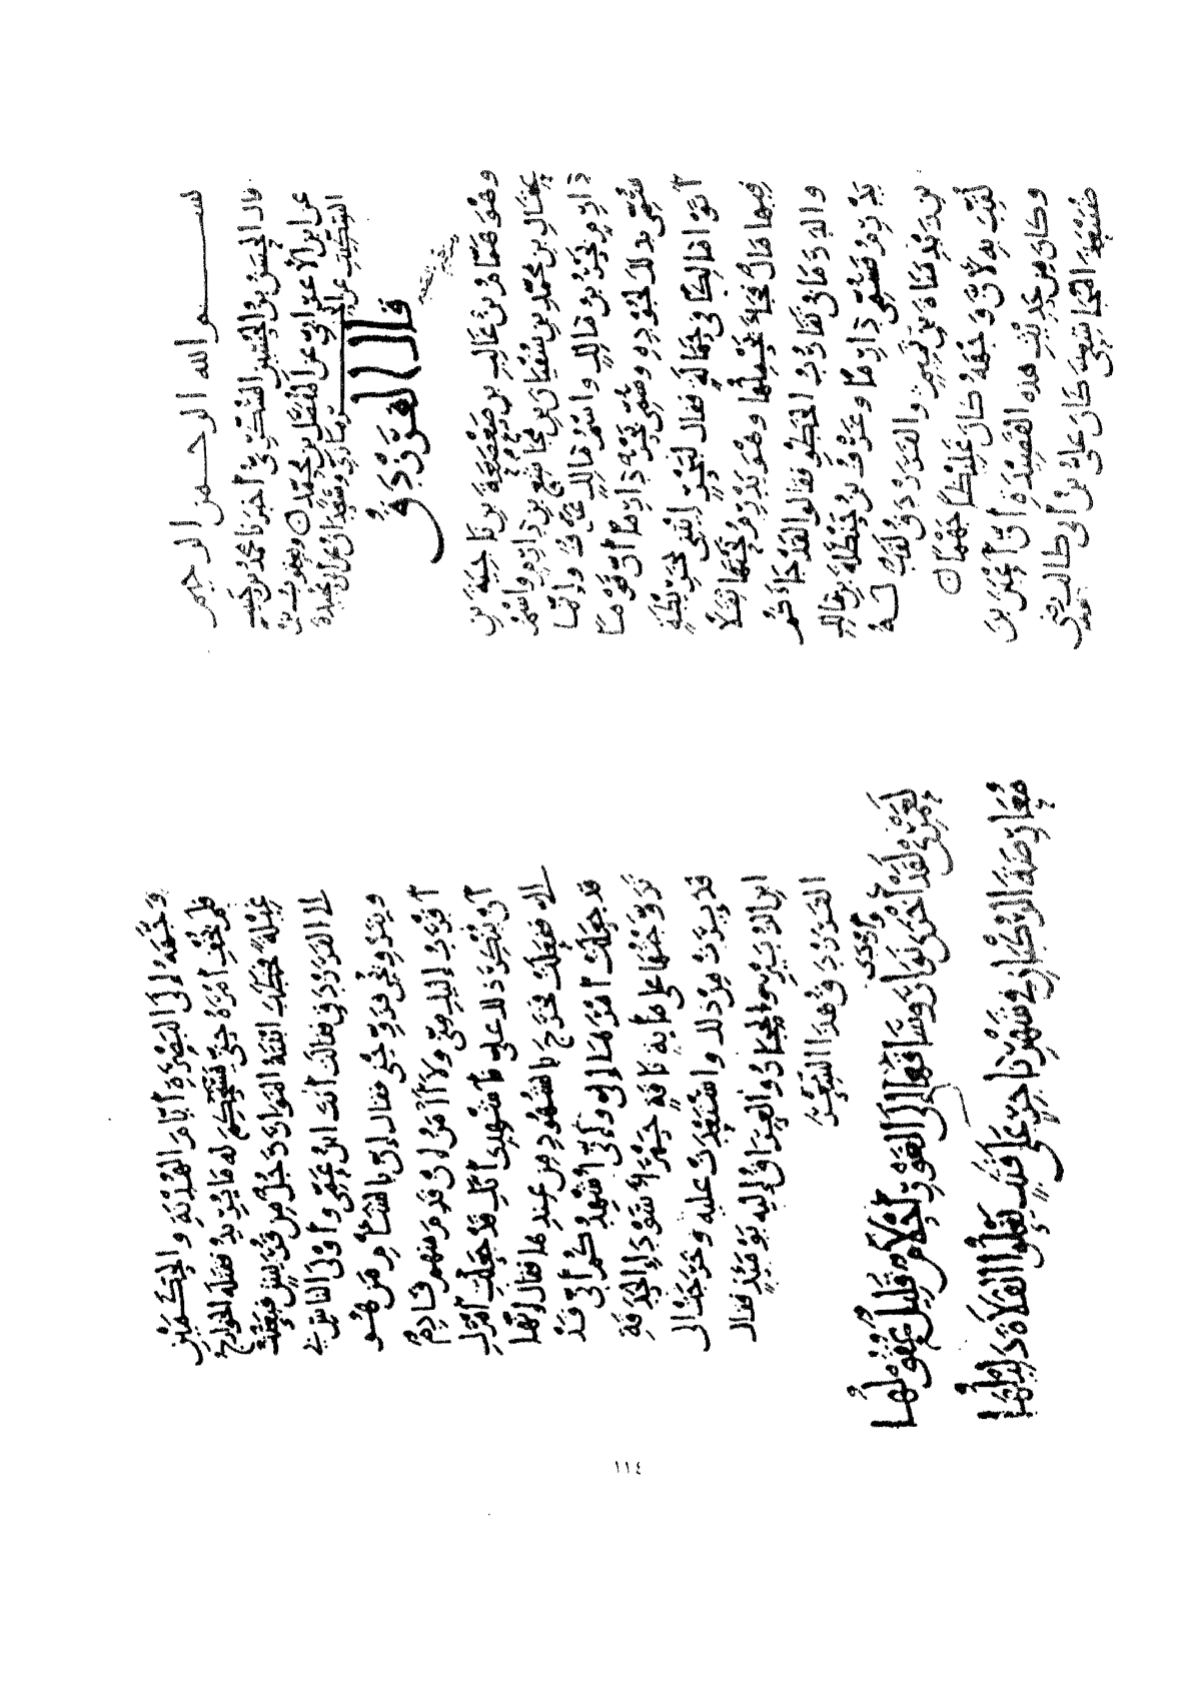 بسم الله الرحمن الرحيم
قال الحسن بن الحسين السكري أخبرنا محمد بن حبيب
عن ابن الأعرابي عن المفضل بن محمد ويعقوب بن
السكيت عن
وسعدان عن أبي عبيدة
قال الفرزدق
وهو همام بن غالب بن صعصعة بن ناجية بن
عقال بن محمد بن سفيان بن مجاشع بن دارم واسم
دارم بحر بن مالك واسم مالك عوف وإنما
سمي بذلك لجوده وسمي بحر دارما أن قوما
أتوا مالكا في حمالة فقال لبحر ائتني بخريطة
فيها مال فجاء يحملها وهو يدرم تحتها ثقلا
والدرمان تقارب الخطو فقال لقد جاءكم
يدرم فسمي دارما وعوف بن حنظلة بن مالك
بن زيد مناة بن تميم والفرزدق لقب له
لقب به لأن وجهه كان غليظا جهما
وكان من حديث هذه القصيدة أن أعين بن
ضبيعة المجاشعي كان علي بن أبي طالب رضي
الله عنه
وجهه إلى البصرة أيام الهدنة والحكمين
فلم يخف أمره حتى له ما يريد فقتله الخوارج
غيلة فخطب ابنته النوار رجل من قريش فبعثت
إلى الفرزدق فقالت أنت ابن عمي وأولى الناس بي
وبتزويجي فزوجني فقال إن بالشام من هو
أقرب إليك مني ولا آمن أن يقدم منهم قادم
أن ينكر ذلك علي فأشهدي أنك قد جعلت أمرك
إلي ففعلت فخرج بالشهود من عندها فقال إنها
قد جعلت أمرها إلي وإني أشهدكم أني قد
تزوجتها على مائة ناقة حمراء سوداء الحدقة
من ذلك واستعدت عليه وخرجت إلى
ابن الزبير والحجاز والعراق إليه يومئذ فقال
الفرزدق في هذا الشعر
لعمري لقد أردى نوار وساقها إلى الغور أحلام قليل عقولها
معارضة الركبان في شهر ناجر على قتب يعلو الفلاة دليلها
١١٤